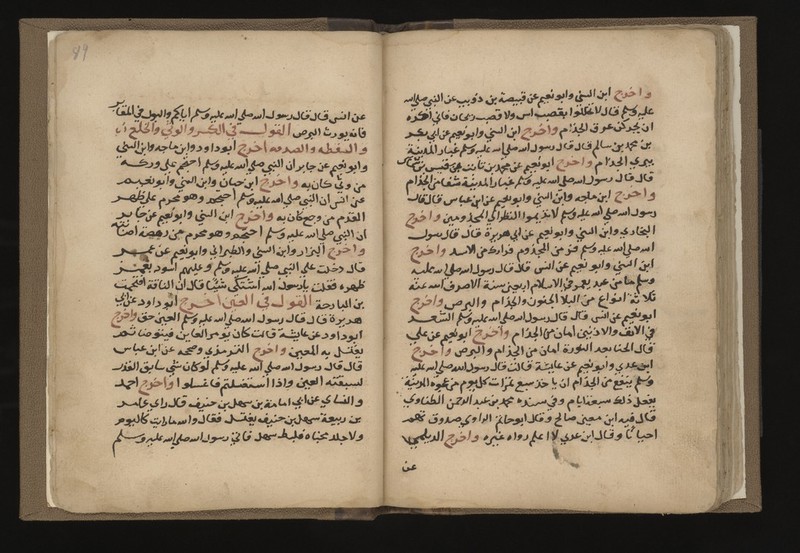 واخرج ابن السني وابو نعيم عن قبيصة بن ذويب عن النبي صلي الله
عليه وسلم قال لا تخللوا بقصب اس ولا قصب ريحان فاني اكره
ان يحركن عرق الجذام واخرج ابن السني وابو نعيم عن ابي بكر
بن محمد بن سالم قال قال رسول الله صلي الله عليه وسلم غبار المدينة
يبري الجذام واخرج ابو نعيم عن محمد بن ثابت بن قيس بن شماس
قال قال رسول الله صلي الله عليه وسلم غبار المدينة شفا من الجذام
واخرج ابن ماجه وابن السني وابو نعيم عن ابن عباس قال قال
رسول الله صلي الله عليه وسلم لا تديموا النظر الي المجذومين واخرج
البخاري وابن السني وابو نعيم عن ابي هريرة قال قال رسول
الله صلي الله عليه وسلم فر من المجذوم فرارك من الاسد واخرج
ابن السني وابو نعيم عن انس قال قال رسول الله صلي الله عليه
وسلم ما من عبد يعمر في الاسلام اربعين سنة الا صرف الله عنه
ثلاثة انواع من البلا الجنون والجذام والبرص واخرج
ابو نعيم عن انس قال قال رسول الله صلي الله عليه وسلم الشعر
في الانف والاذنين امان من الجذام واخرج ابو نعيم عن علي
قال الحنا بعد النورة امان من الجذام والبرص واخرج
ابن عدي وابو نعيم عن عايشة قالت قال رسول الله صلي الله عليه
وسلم ينفع من الجذام ان ياخذ سبع تمرات كل يوم من عجوة المدينة
يفعل ذلك سبعة ايام وفي سنده محمد بن عبد الرحمن الطفاوي
قال فيه ابن معين صالح وقال ابو حاتم الرازي صدوق يهم
احيانا وقال ابن عدي لا اعلم رواه غيره واخرج الديلمي
عن
89
عن انس قال قال رسول الله صلي الله عليه وسلم اياكم والبول في المقابر
فانه يورث البرص القول في الكسر والوثي والخلع
والسقطه والصدمه اخرج ابو داود وابن ماجه وابن السني
وابو نعيم عن جابر ان النبي صلي الله عليه وسلم احتجم علي وركه
من وثي كان به واخرج ابن حبان وابن السني وابو نعيم
عن انس ان النبي صلي الله عليه وسلم احتجم وهو محرم علي ظهر
القدم من وجع كان به واخرج ابن السني وابو نعيم عن جابر
ان النبي صلي الله عليه وسلم احتجم وهو محرم من رهصة اصابته
واخرج البزار وابن السني والطبراني وابو نعيم عن عمر
قال دخلت علي النبي صلي الله عليه وسلم وغليم اسود يغمز
ظهره فقلت يا رسول الله اتشتكي شيا قال ان الناقة اقتحمت
بي البارحة القول في العين اخرج ابو داود عن ابي
هريرة قال قال رسول الله صلي الله عليه وسلم العين حق واخرج
ابو داود عن عايشة قالت كان يومر العاين فيتوضا ثم
يغتسل به المعين واخرج الترمذي وصححه عن ابن عباس
قال قال رسول الله صلي الله عليه وسلم لو كان شي سابق القدر
لسبقته العين واذا استغسلتم فاغسلوا واخرج احمد
والنساي عن ابي امامة بن سهل بن حنيف قال راي عامر
بن ربيعة سهل بن حنيف يغتسل فقال والله ما رايت كاليوم
ولا جلد مخباه فلبط سهل فاتي رسول الله صلي الله عليه وسلم